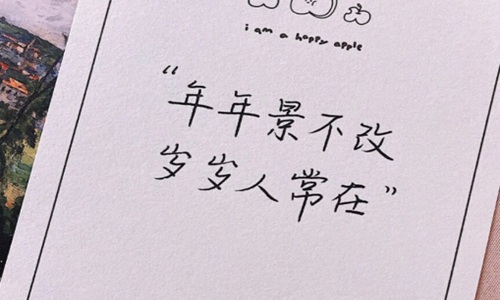 i am a happy apple
“年年景不改
岁岁人常在”